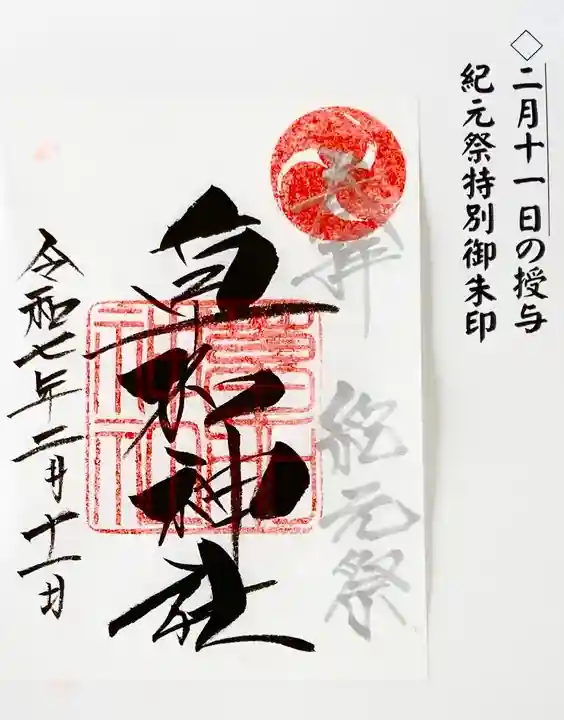 ◇二月十一日の授与
紀元祭特別御朱印
奉拝 紀元祭
神社
令和七年二月十一日